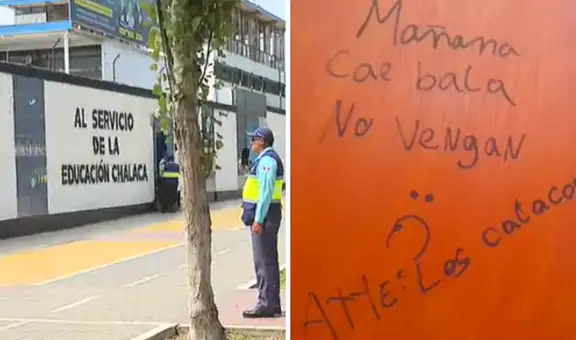 AL SERVICIO
DE LA
EDUCACIÓN CHALACA
Mañana
cae bala
No vengan
Atte: Los cataco